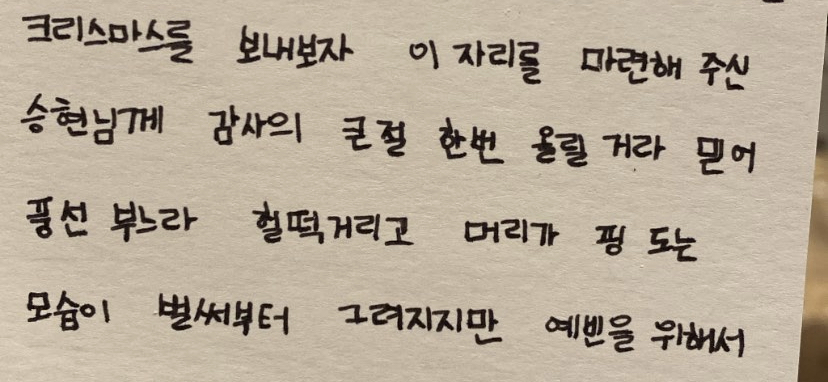 크리스마스를 보내보자 이 자리를 마련해 주신
승현님께 감사의 큰절 한번 올릴 거라 믿어
풍선 부느라 헐떡거리고 머리가 핑 도는
모습이 벌써부터 그려지지만 예빈을 위해서